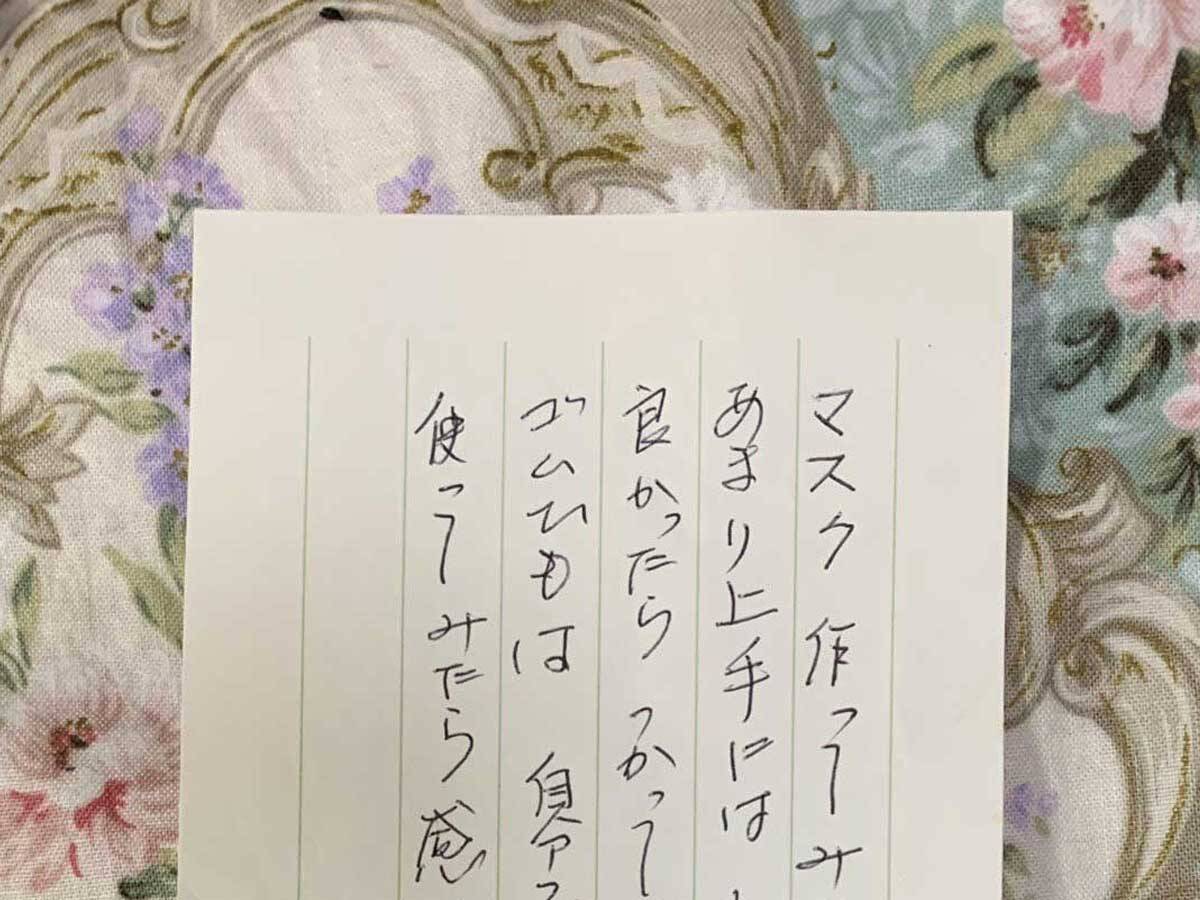 マスク 作ってみ
あまり上手には
良かったら つかって
ゴムひもは
使ってみたら 感